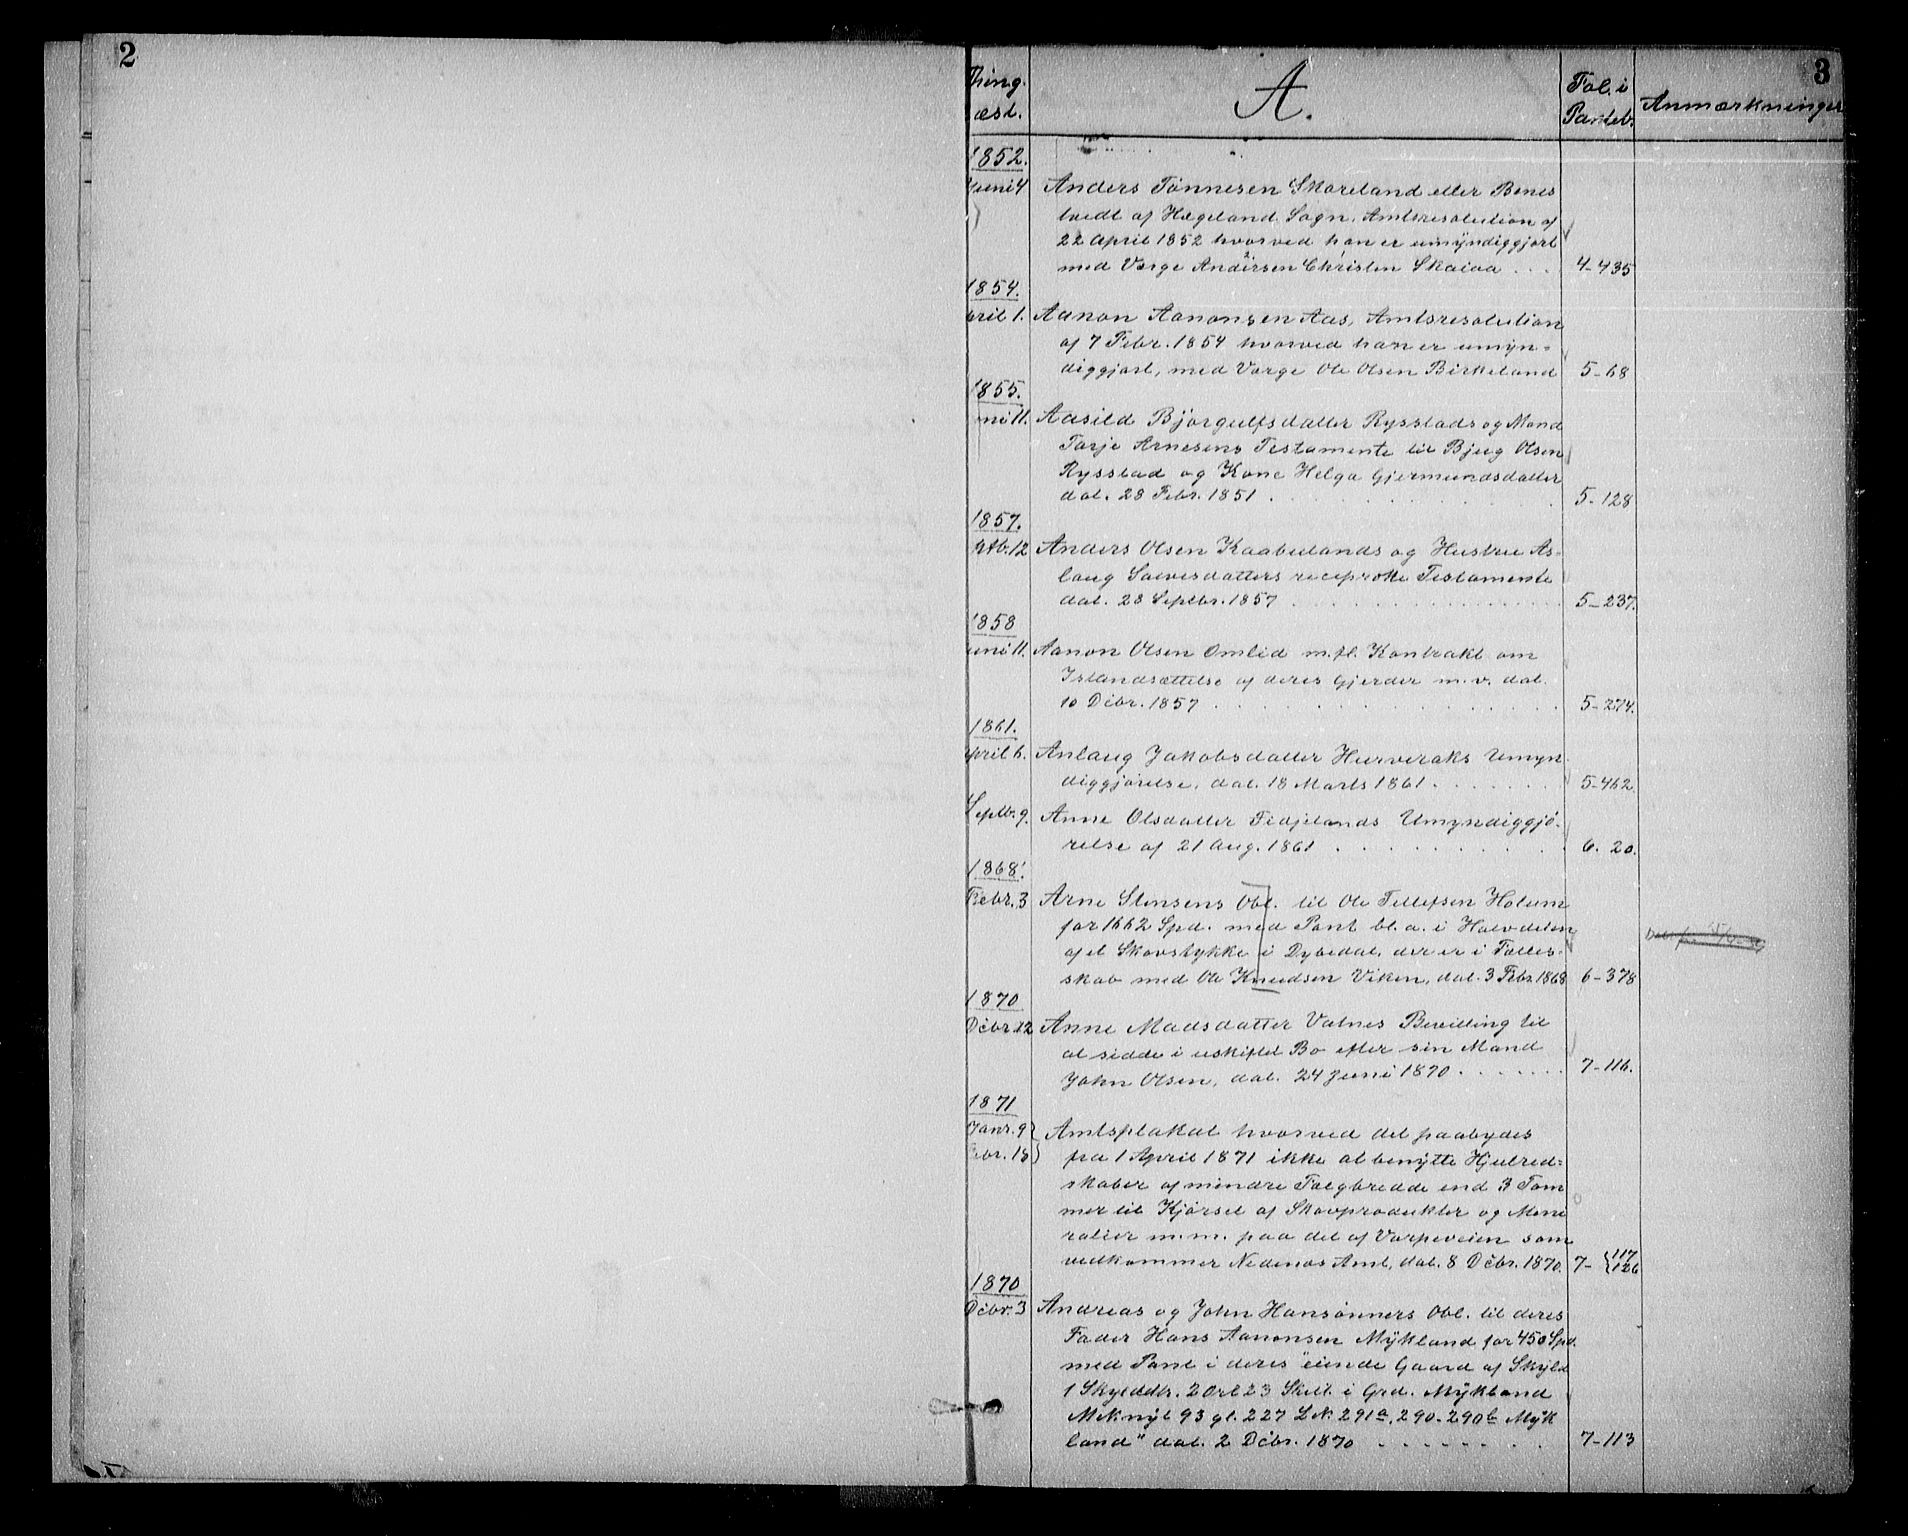 2
3
Thing-
læst.
A.
Fol. i
Panteb.
Anmærkninger
1852.
Juni 4
Anders Tønnesen Skoreland eller Bones
tvedt af Hægeland Sogn, Amtsresolution af
22 April 1852 hvorved han er umyndiggjort
med Værge Andersen Christen Skaiaa . . . 4-435
1854.
April 1. Aanon Aanonsen Aas, Amtsresolution
af 7 Febr. 1854 hvorved han er umyn-
diggjort, med Værge Ole Olsen Birkeland 5-68
1855.
Juni 11. Aasild Bjørgulfsdatter Rysstads og Mand
Torje Arnesens Testamente til Bjug Olsen
Rysstad og Kone Helga Gjermundsdatter
dat. 28 Febr. 1851 . . . 5-128
1857.
Oktb. 12 Anders Olsen Kaabelands og Hustru As-
laug Salvesdatters reciproke Testamente
dat. 28 Septbr. 1857 . . . 5-237.
1858
Juni 11. Aanon Olsen Omlid m.fl. Kontrakt om
Istandsættelse af deres Gjerder m.v. dat.
10 Dcbr. 1857 . . . 5-274.
1861.
April 6. Anlaug Jakobsdatter Hurveraks Umyn-
diggjørelse, dat. 18 Marts 1861 . . . 5-462.
Septb. 9. Anne Olsdatter Fidjelands Umyndiggjø-
relse af 21 Aug. 1861 . . . 6. 20.
1868.
Febr. 3 Arne Stensens Obl. til Ole Tellefsen Holum
for 1662 Spd. med Pant bl.a. i Halvdelen
af et Skovstykke i Dybedal, der er i Fælles-
skab med Ole Knudsen Viken, dat. 3 Febr 1868 6-378
1870
Dcbr. 12 Anne Madsdatter Vatnes Bevilling til
at sidde i uskiftet Bo efter sin Mand
John Olsen, dat. 24 Juni 1870 . . . 7-116.
1871
Janr. 9
Febr. 18
Amtsplakat hvorved det paabydes
fra 1 April 1871 ikke at benytte Hjulred-
skaber af mindre Fælgbredde end 3 Tom
mer til Kjørsel af Skovprodukter og Mine
ralier m.m. paa det af Varpeveien som
vedkommer Nedenæs Amt, dat. 8 Dcbr. 1870. 7- {117 126
1870
Dcbr. 3 Andreas og John Hanssønners Obl. til deres
Fader Hans Aanonsen Mykland for 450 Spd.
med Pant i deres "eiende Gaard af Skyld
1 Skylddlr. 2 Ort 23 Skill. i Grd. Mykland
M.Nnyt 93 gl. 227 L.N. 291a, 290-290b Myk
land" dat. 2 Dcbr. 1870 . . . 7-113